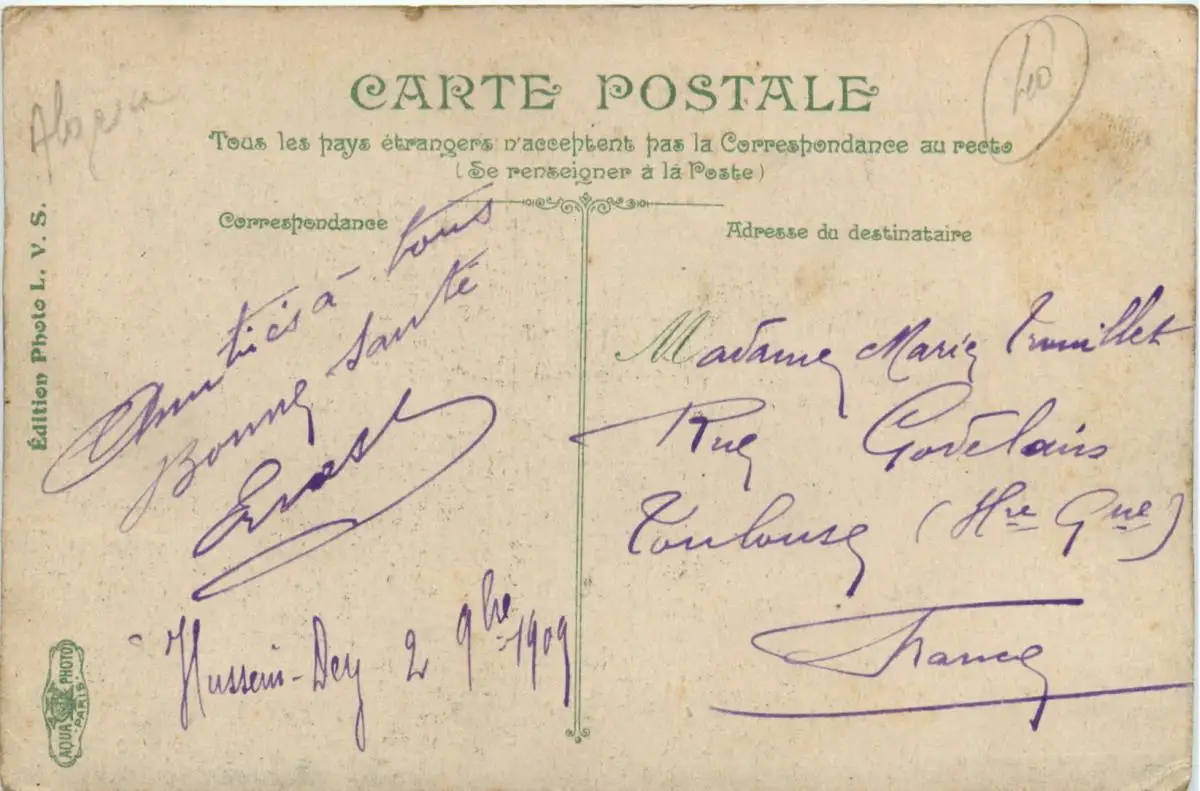 CARTE POSTALE
Tous les pays étrangers n'acceptent pas la Correspondance au recto
(Se renseigner à la Poste)
Correspondance
Adresse du destinataire
Édition Photo L. V. S.
Amitiés à tous
Bonne santé
Ernest
Hussein-Dey 2 9bre 1909
Madame Marie
Rue Godelais
Toulouse (Hte Gne)
France
AQUA PHOTO
PARIS